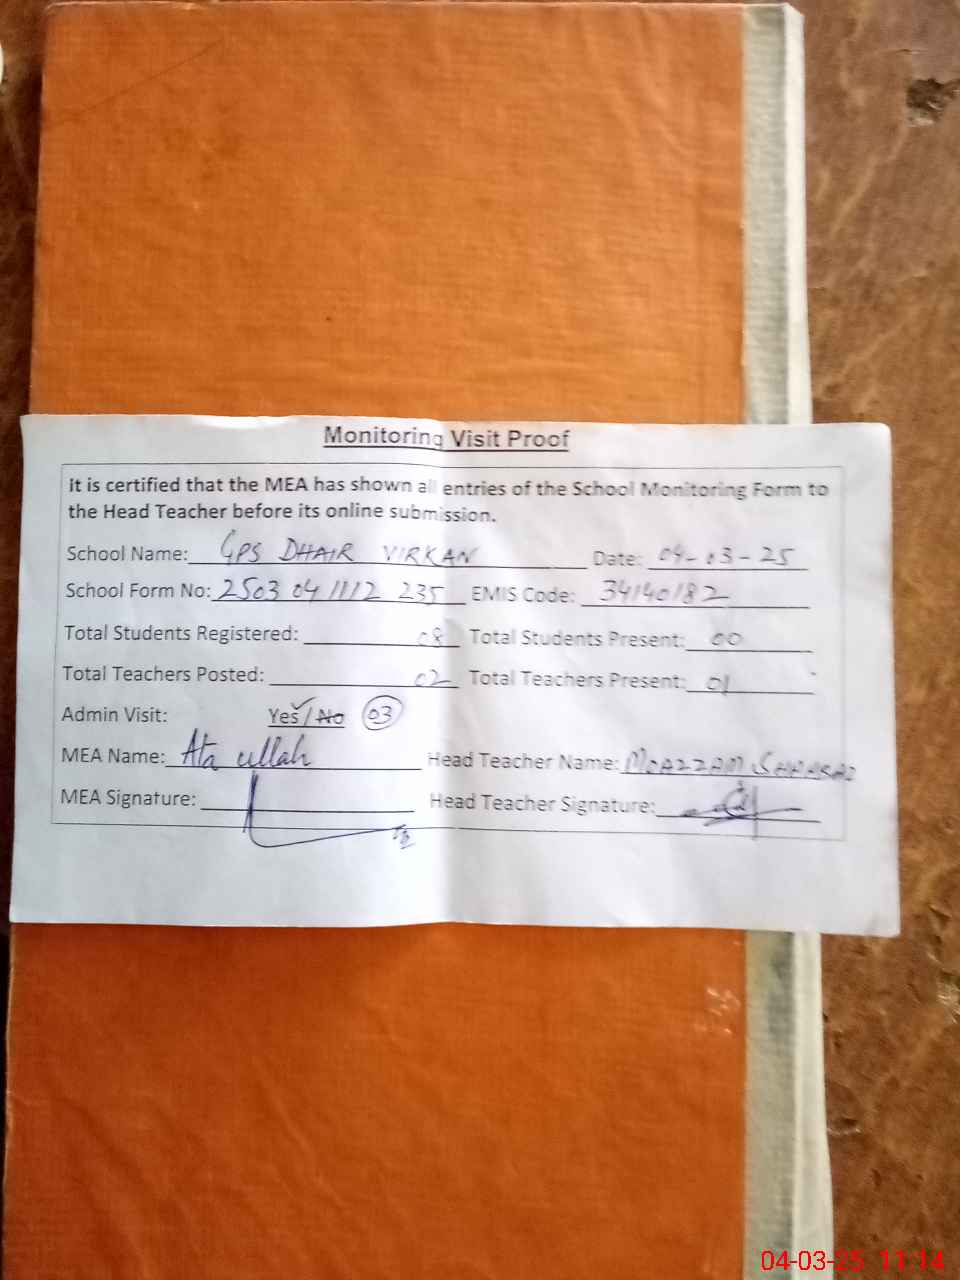 Monitoring Visit Proof
It is certified that the MEA has shown all entries of the School Monitoring Form to
the Head Teacher before its online submission.
School Name: GPS DHAIR VIRKAN Date: 04-03-25
School Form No: 2503 04 1112 235 EMIS Code: 34140182
Total Students Registered: 08 Total Students Present: 00
Total Teachers Posted: 02 Total Teachers Present: 01
Admin Visit: Yes/No 03
MEA Name: Ata ullah Head Teacher Name: MOAZZAM
MEA Signature: Head Teacher Signature:
04-03-25 11:14